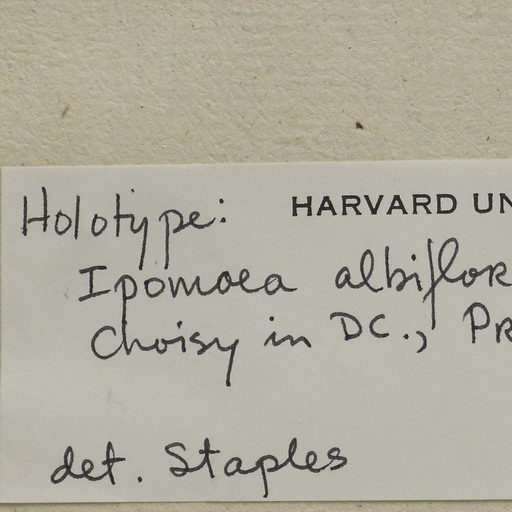 Holotype: HARVARD UN
Ipomoea albiflor
Choisy in DC., Pr
det. Staples